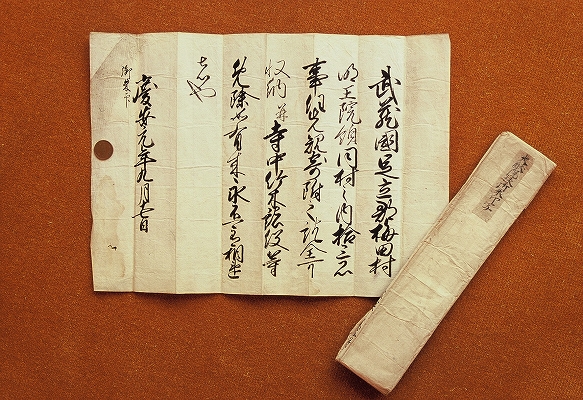 武蔵國足立郡梅田村
明王院領同村之内拾
事任先規寄附之訖全可
収納并寺中竹木諸役等
免除如有来永不可相違
者也
慶安元年九月十七日